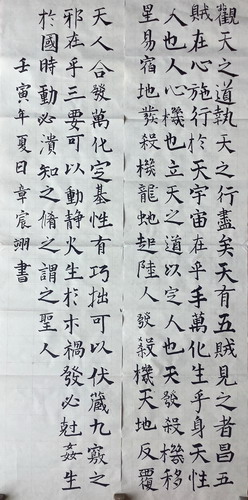 觀天之道執天之行盡矣天有五賊見之者昌五
賊在心施行於天宇宙在乎手萬化生乎身天性
人也人心機也立天之道以定人也天發殺機移
星易宿地發殺機龍蛇起陸人發殺機天地反覆
天人合發萬化定基性有巧拙可以伏藏九竅之
邪在乎三要可以動靜火生於木禍發必尅姦生
於國時動必潰知之脩之謂之聖人
壬寅年夏日章宸翊書